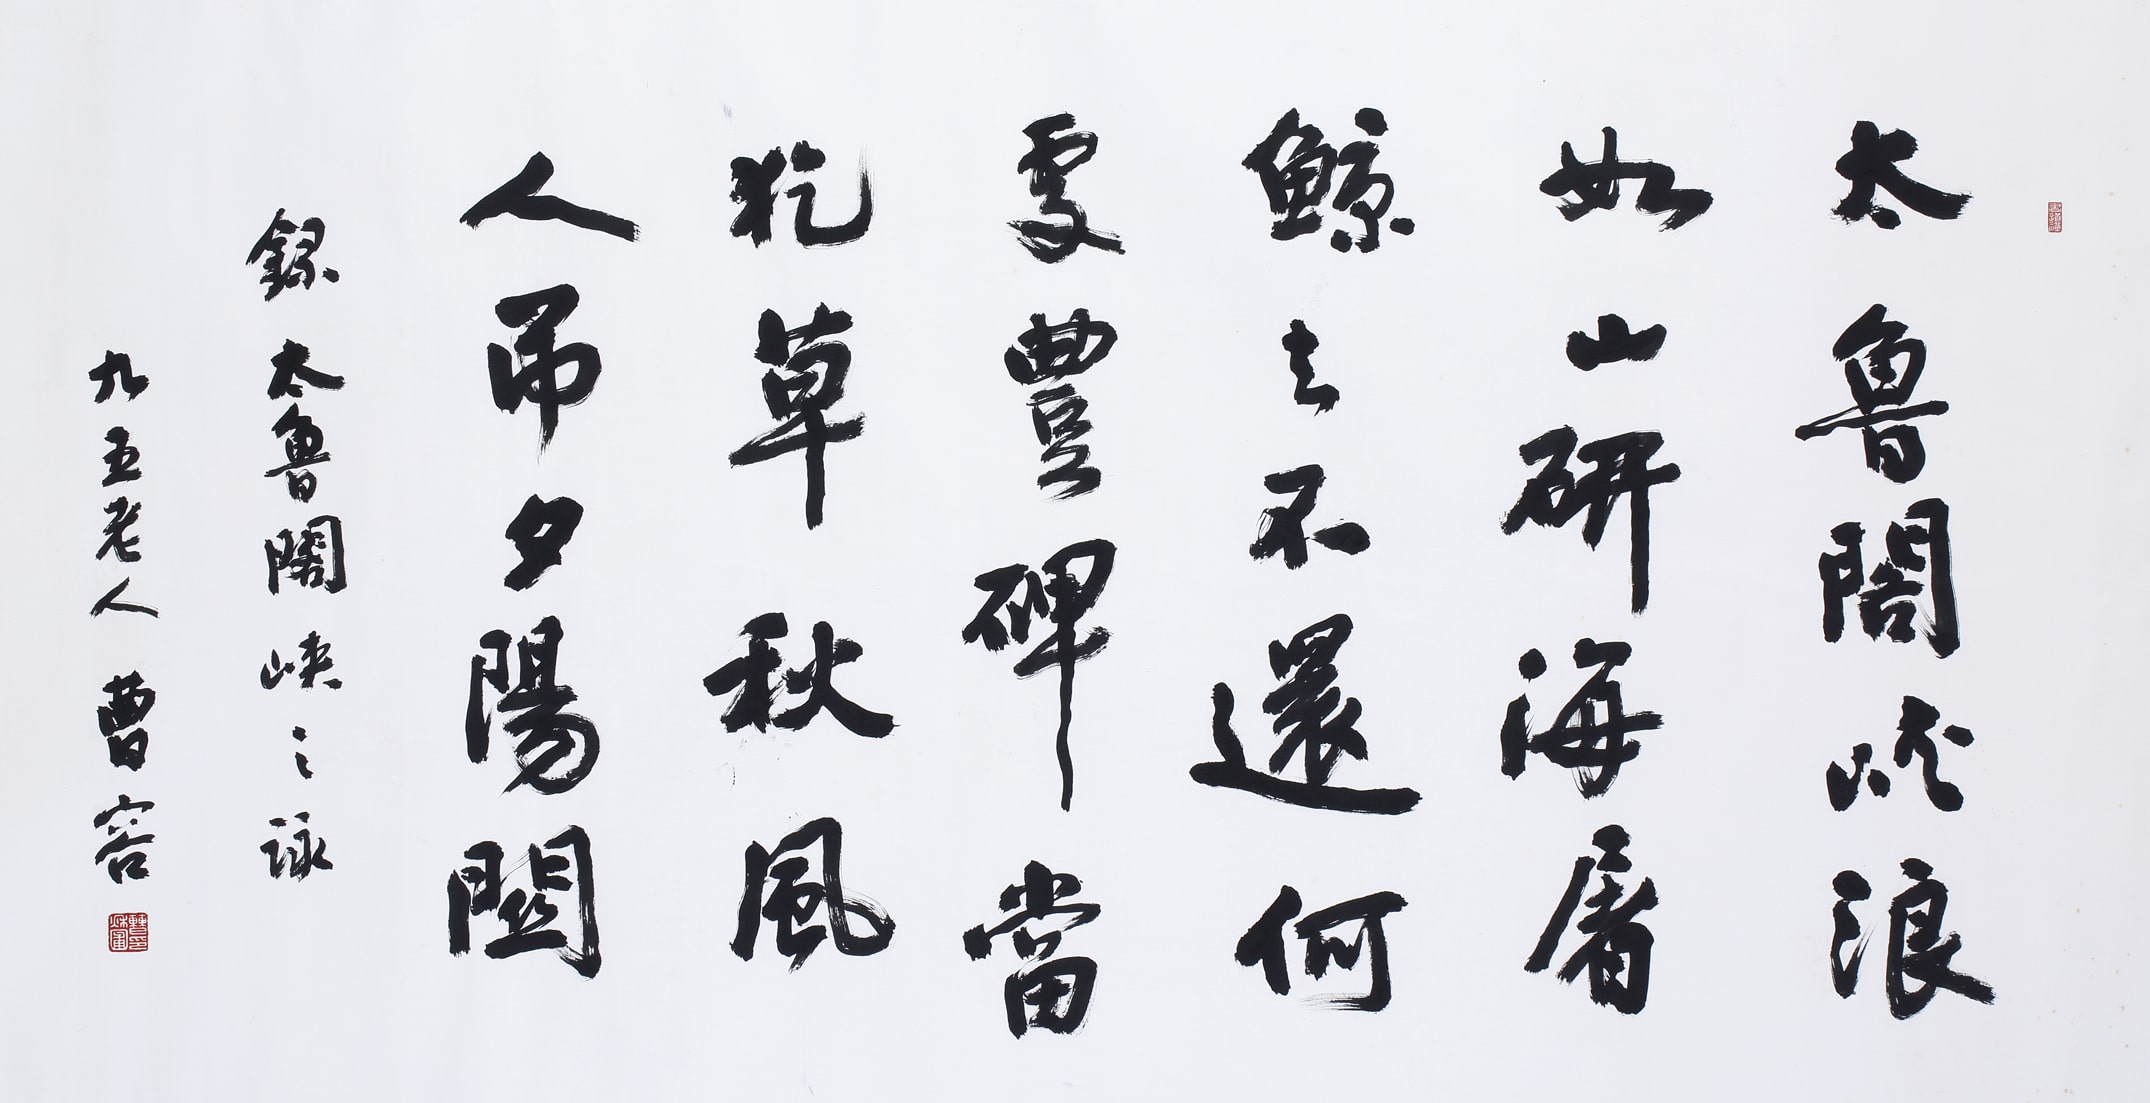 太魯閣峽浪
如山研海屠
鯨去不還何
處豐碑當
犵草秋風
人弔夕陽關
錄太魯閣峽之詠
九五老人曹容
曹印秋圃